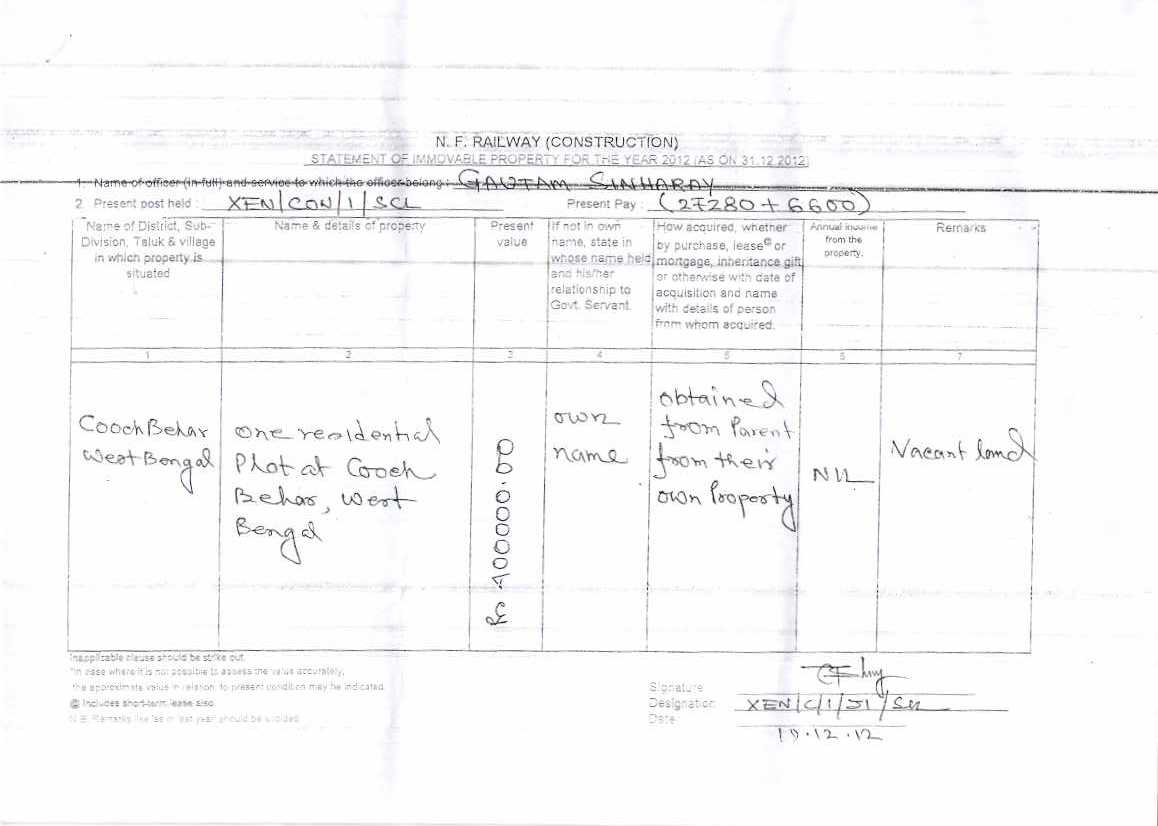 N. F. RAILWAY (CONSTRUCTION)
STATEMENT OF IMMOVABLE PROPERTY FOR THE YEAR 2012 (AS ON 31.12.2012)
1. Name of officer (in full) and service to which the officer belong : GAUTAM SINHARAY
2. Present post held : XEN/CON/1/SCL Present Pay : (27280 + 6600)
Name of District, Sub-
Division, Taluk & village
in which property is
situated
Name & details of property
Present
value
If not in own
name, state in
whose name held
and his/her
relationship to
Govt. Servant.
How acquired, whether
by purchase, lease@ or
mortgage, inheritance gift
or otherwise with date of
acquisition and name
with details of person
from whom acquired.
Annual income
from the
property.
Remarks
1 2 3 4 5 6 7
Cooch Behar
West Bengal
One residential
Plot at Cooch
Behar, West
Bengal
400000.00
own
name
obtained
from Parent
from their
own Property
NIL
Vacant land
Inapplicable clause should be strike out.
*In case where it is not possible to assess the value accurately,
the approximate value in relation to present condition may be indicated.
@ Includes short-term lease also
N.B. Remarks like 'as in last year' should be avoided
Signature
Designation XEN/C/1/
Date
19.12.12